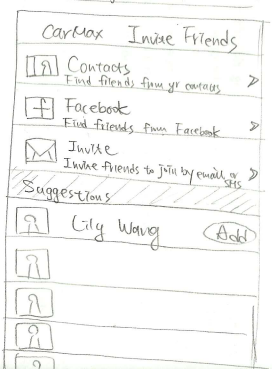 CarMax Invite Friends
Contacts
Find friends from yr contacts
Facebook
Find friends from Facebook
Invite
Invite friends to join by email or
SMS
Suggestions
Lily Wang Add